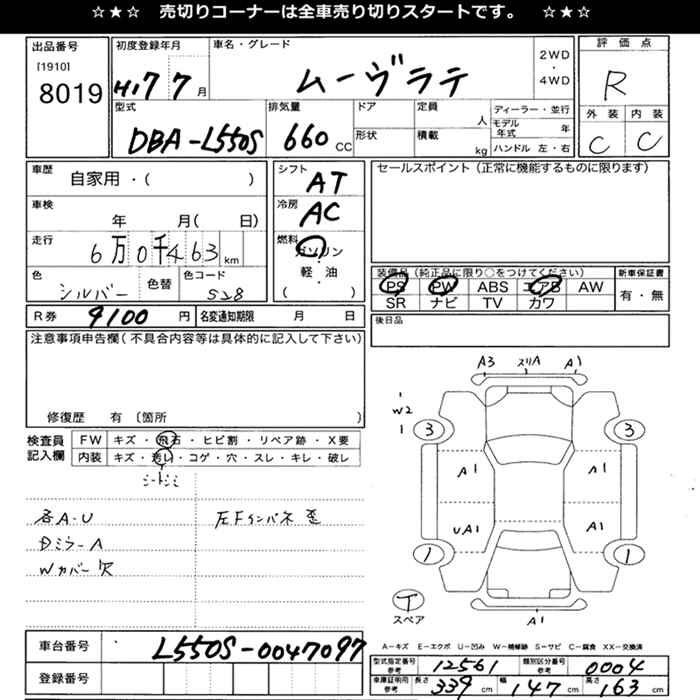 ☆★☆ 売切りコーナーは全車売り切りスタートです。 ☆★☆
出品番号 初度登録年月 車名・グレード 評価点
[1910] 8019 H17 7月 ムーヴラテ 2WD・4WD R
型式 排気量 ドア 定員 人 ディーラー・並行 外装 内装
DBA-L550S 660CC 形状 積載 kg モデル年式 年 C C
ハンドル 左・右
車歴 自家用・( ) シフト AT セールスポイント(正常に機能するものに限ります)
車検 年 月( 日) 冷房 AC
走行 6万0千463km 燃料 ガソリン・軽・油 ( )
装備品(純正品に限り○をつけてください) 新車保証書
色 シルバー 色替 色コード S28 PS PW ABS エアB AW 有・無
SR ナビ TV カワ
R券 9100円 名変通知期限 月 日 後日品
注意事項申告欄(不具合内容等は具体的に記入して下さい)
修復歴 有 〔箇所 )
A3 スリA A1
W2
3 3
検査員記入欄 FW キズ・飛石・ヒビ割・リペア跡・X要
内装 キズ・汚レ・コゲ・穴・スレ・キレ・破レ
シートシミ
A1 A1
各A-U 左Fインパネ歪
UA1 A1
Dミラ-A
Wカバー欠
1 1
T
スペア
A1
車台番号 L550S-0047097
A-キズ E-エクボ U-凹み W-補修跡 S-サビ C-腐食 XX-交換済
型式指定番号 参考 12561 類別区分番号 参考 0004
登録番号 車庫証明用 参考 長さ 339cm 幅 147cm 高さ 163cm